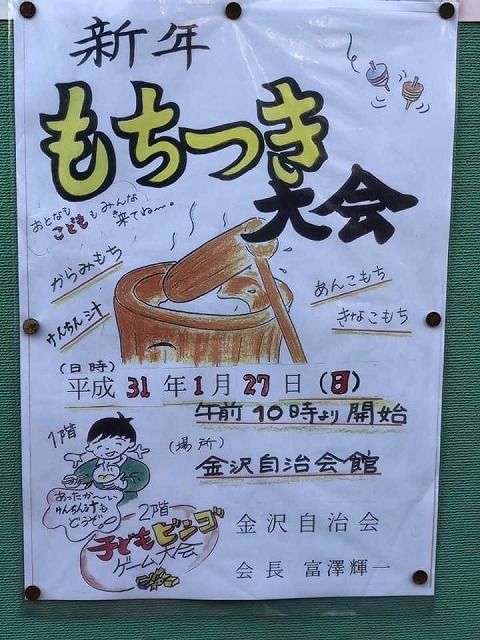 新年
もちつき
大会
おとなも
こどももみんな
来てね〜。
からみもち
けんちん汁
あんこもち
きなこもち
(日時)
平成31年1月27日(日)
午前10時より開始
(場所)
金沢自治会館
1階
あったか〜い
けんちん汁も
どうぞ
2階
子どもビンゴ
ゲーム大会
金沢自治会
会長 富澤輝一